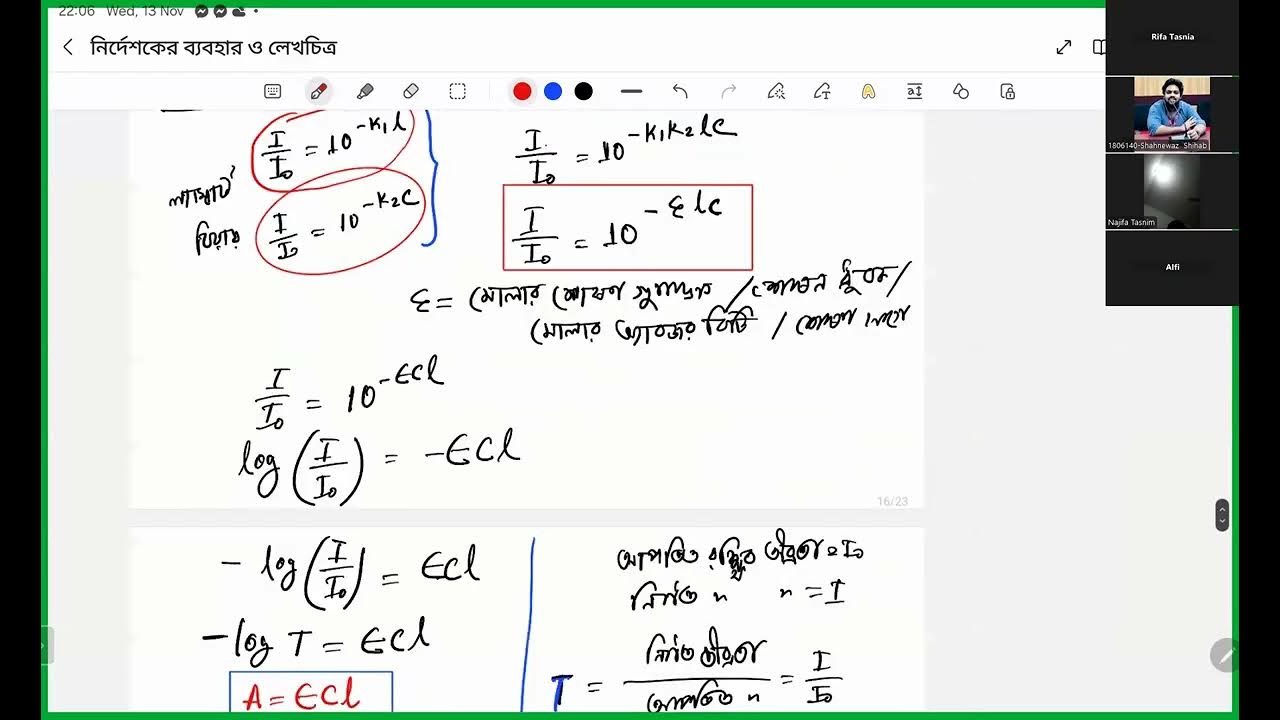 22:06 Wed, 13 Nov
নির্দেশকের ব্যবহার ও লেখচিত্র
Rifa Tasnia
1806140-Shahnewaz Shihab
Najifa Tasnim
Alfi
I/I₀ = 10^(-K₁l)
ল্যাম্বার্ট
I/I₀ = 10^(-K₂C)
বিয়ার
I/I₀ = 10^(-K₁K₂lC)
I/I₀ = 10^(-εlC)
ε = মোলার শোষণ গুণাঙ্ক / শোষণ ধ্রুবক /
মোলার অ্যাবজরবিটি / শোষণ
I/I₀ = 10^(-ЄCl)
log(I/I₀) = -ЄCl
16/23
-log(I/I₀) = ЄCl
-log T = ЄCl
A = ЄCl
আপতিত রশ্মির তীব্রতা = I₀
নির্গত " " = I
T = নির্গত তীব্রতা / আপতিত " = I/I₀